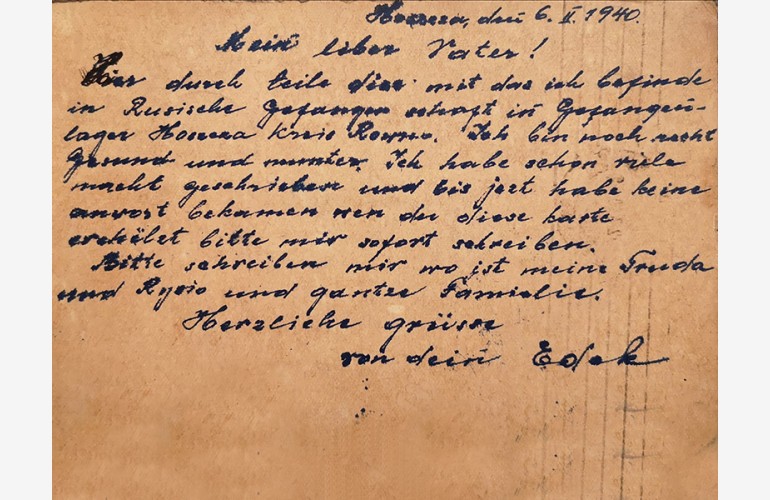 Hoszcza, den 6. II. 1940.
Mein liber Vater!
Hier durch teile dier mit das ich befinde
in Rusische Gefangenschaft in Gefangen-
lager Hoszcza Kreis Rowno. Ich bin noch recht
gesund und munter. Ich habe schon viele
macht geschrieben und bis jezt habe keine
anwort bekamen wen du diese karte
erhälzt bitte mir sofort schreiben.
Bitte schreiben mir wo ist meine Truda
und Rysio und gantze Familie.
Herzliche grüsse
von dein Edek